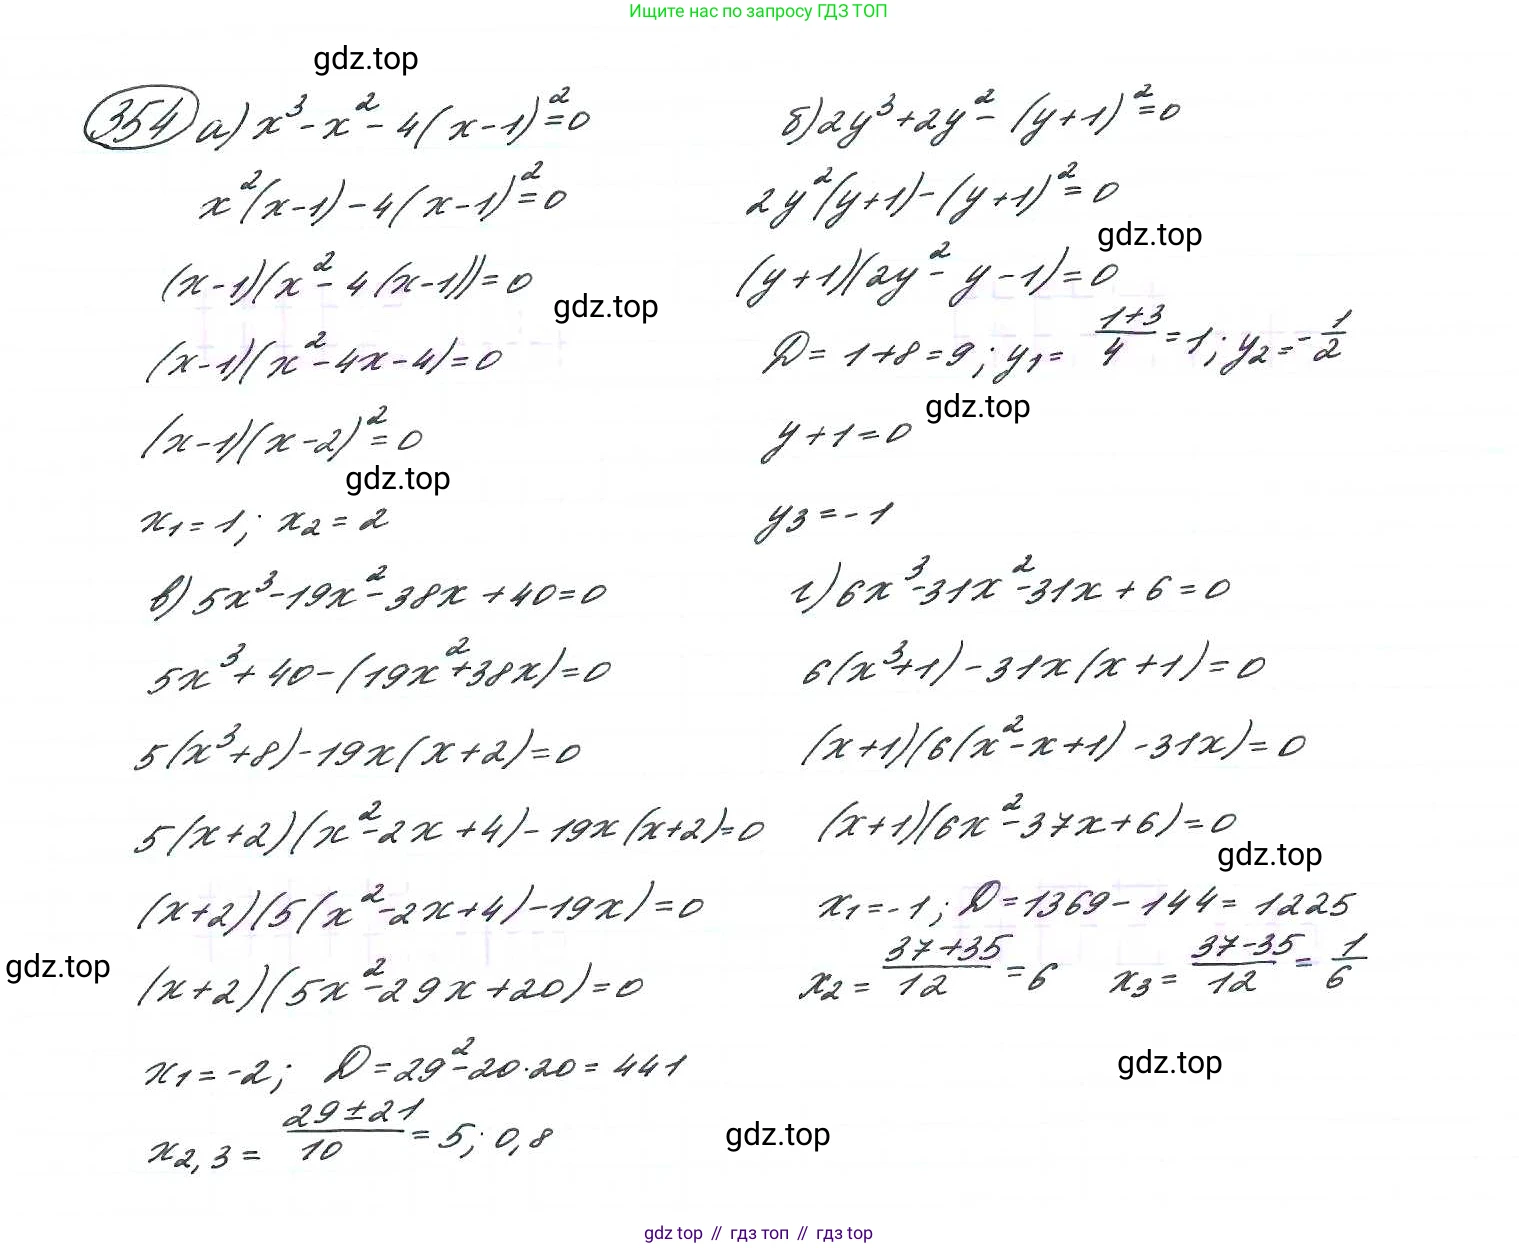 Ищите нас по запросу ГДЗ ТОП
gdz.top
354 а) x³ - x² - 4(x-1)² = 0
x²(x-1) - 4(x-1)² = 0
(x-1)(x² - 4(x-1)) = 0
gdz.top
(x-1)(x² - 4x - 4) = 0
(x-1)(x-2)² = 0
gdz.top
x₁ = 1; x₂ = 2
б) 2y³ + 2y² - (y+1)² = 0
2y²(y+1) - (y+1)² = 0
gdz.top
(y+1)(2y² - y - 1) = 0
D = 1+8 = 9; y₁ = (1+3)/4 = 1; y₂ = -1/2
gdz.top
y+1 = 0
y₃ = -1
в) 5x³ - 19x² - 38x + 40 = 0
5x³ + 40 - (19x² + 38x) = 0
5(x³+8) - 19x(x+2) = 0
5(x+2)(x² - 2x + 4) - 19x(x+2) = 0
(x+2)(5(x² - 2x + 4) - 19x) = 0
gdz.top
(x+2)(5x² - 29x + 20) = 0
x₁ = -2; D = 29² - 20·20 = 441
x₂,₃ = (29±21)/10 = 5; 0,8
г) 6x³ - 31x² - 31x + 6 = 0
6(x³+1) - 31x(x+1) = 0
(x+1)(6(x² - x + 1) - 31x) = 0
(x+1)(6x² - 37x + 6) = 0
gdz.top
x₁ = -1; D = 1369 - 144 = 1225
x₂ = (37+35)/12 = 6 x₃ = (37-35)/12 = 1/6
gdz.top
gdz.top
gdz top // гдз топ // гдз top